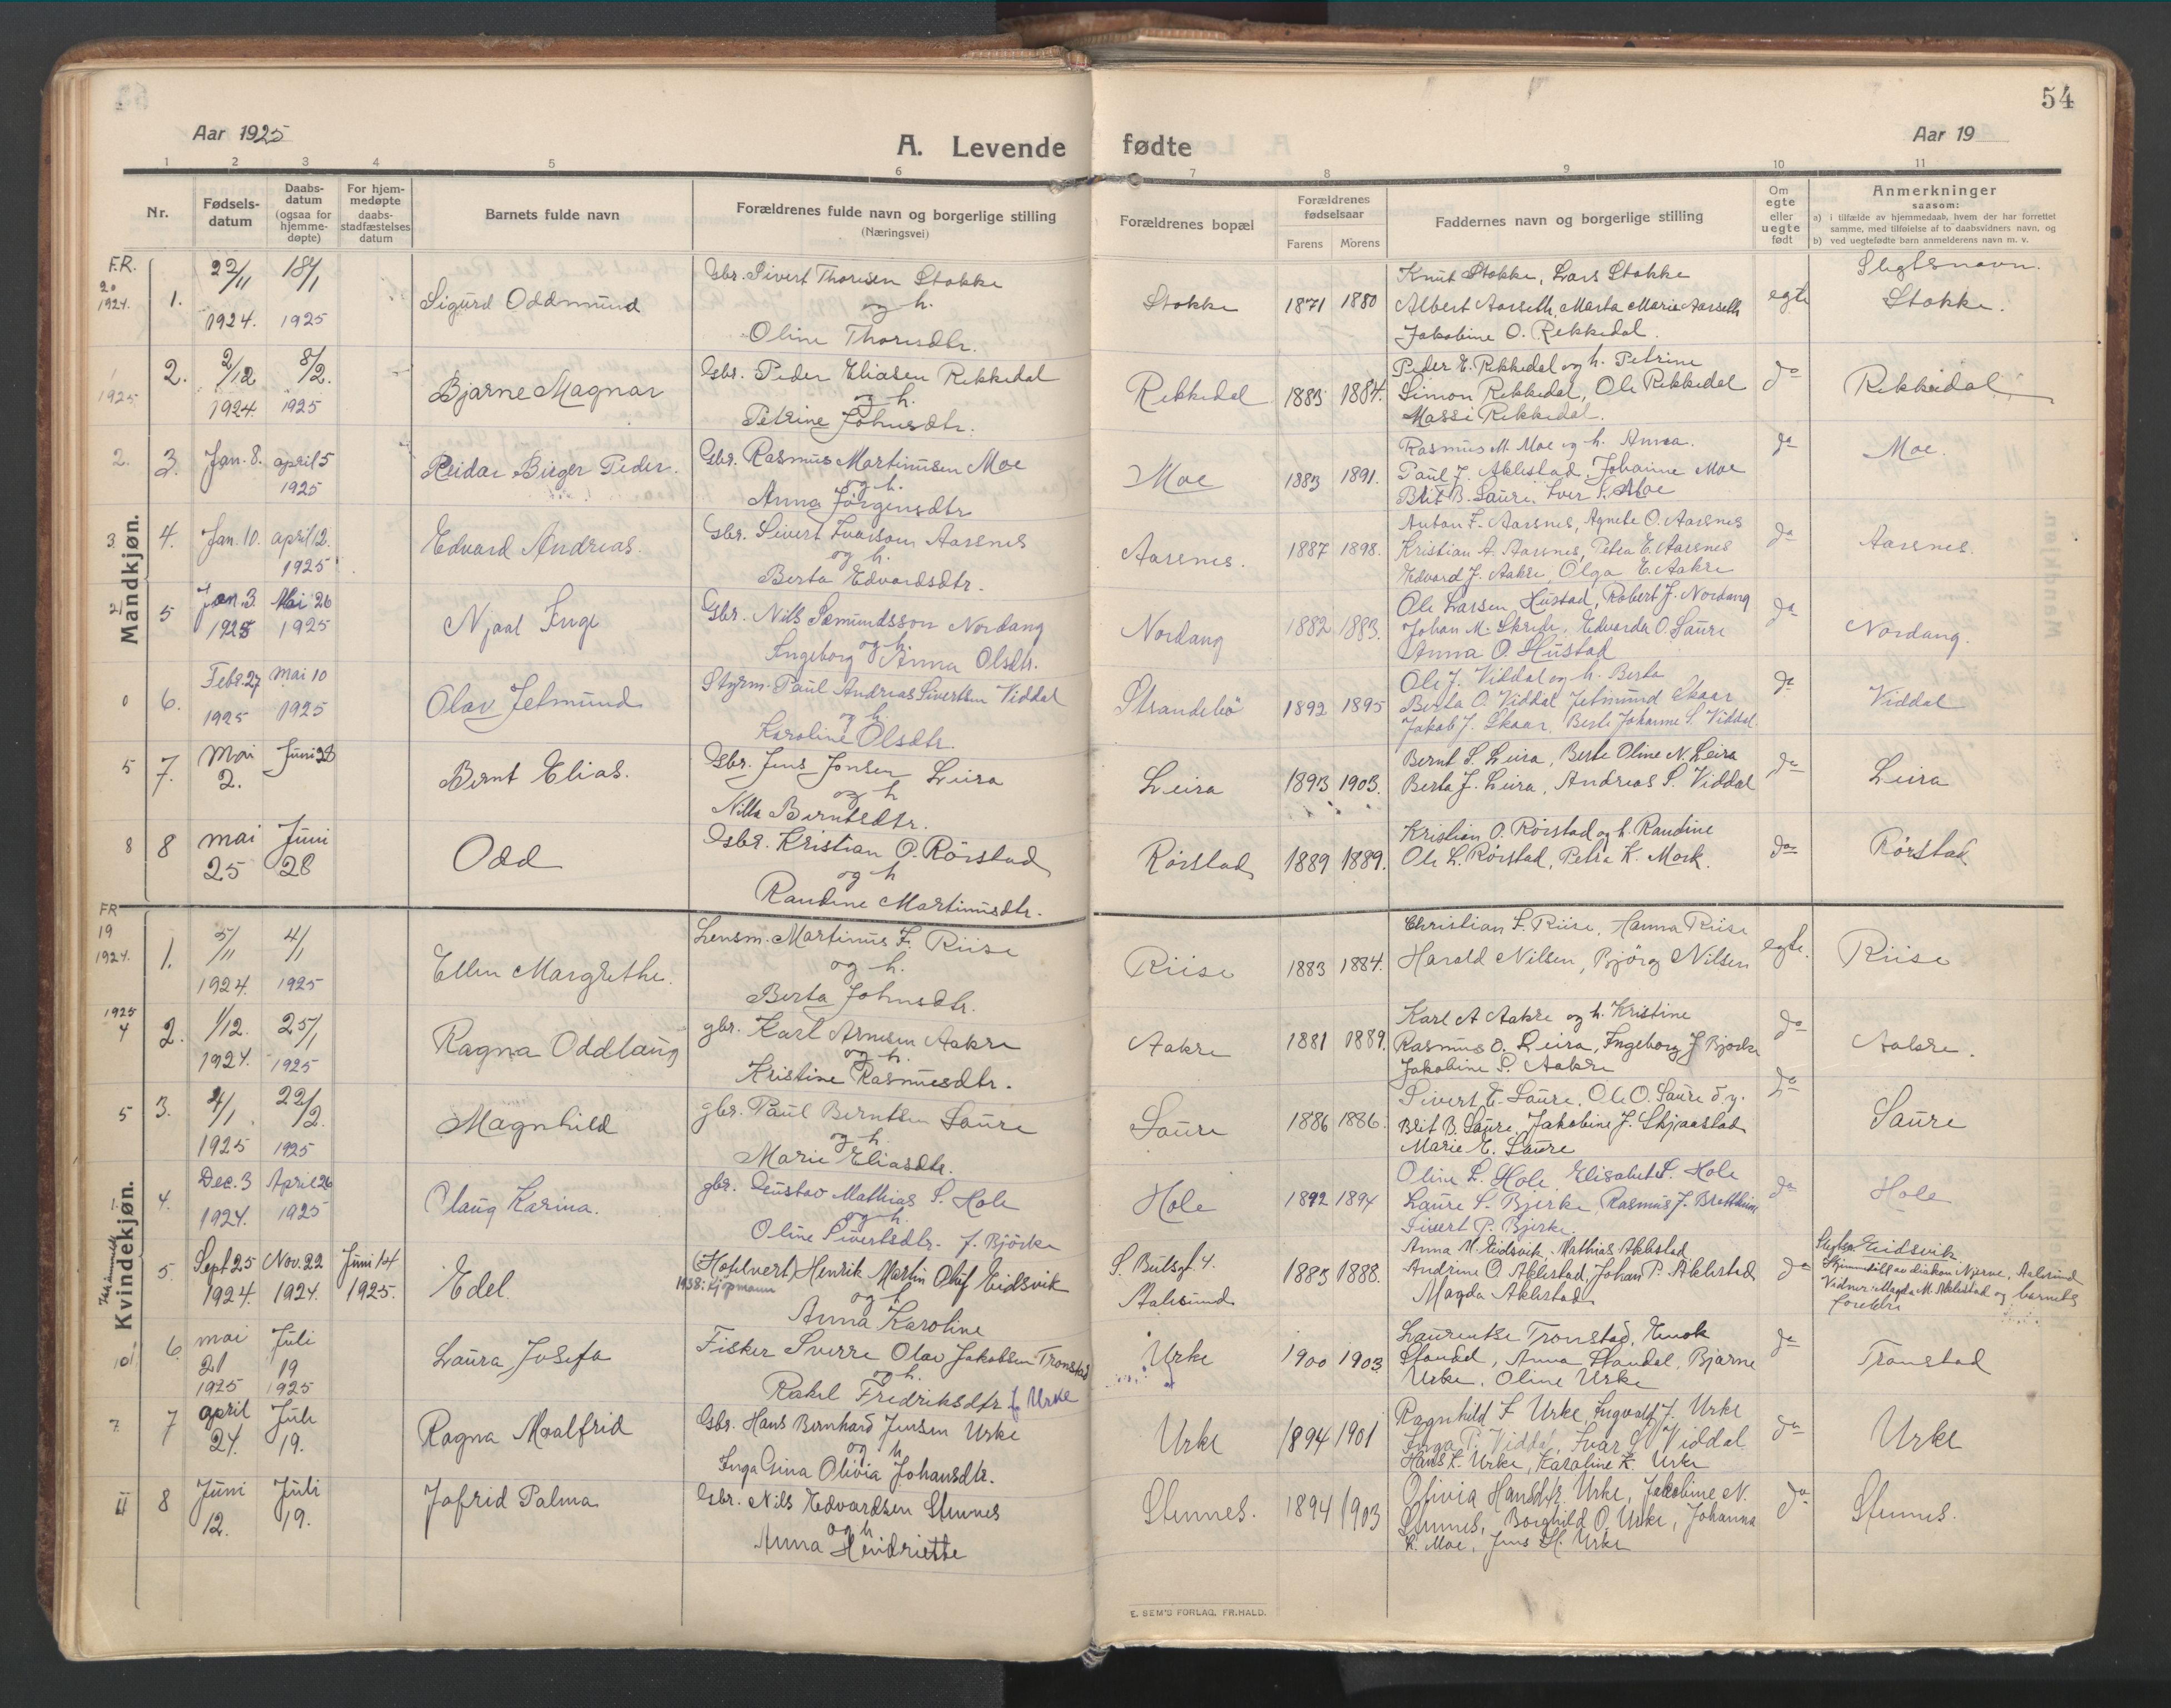 54
Aar 1925
A. Levende fødte
Aar 19
1 2 3 4 5 6 7 8 9 10 11
Nr.
Fødsels-
datum
Daabs-
datum
(ogsaa for
hjemme-
døpte)
For hjem-
medøpte
daabs-
stadfæstelses
datum
Barnets fulde navn
Forældrenes fulde navn og borgerlige stilling
(Næringsvei)
Forældrenes bopæl
Forældrenes
fødselsaar
Farens Morens
Faddernes navn og borgerlige stilling
Om
egte
eller
uegte
født
Anmerkninger
saasom:
a) i tilfælde av hjemmedaab, hvem der har forrettet
samme, med tilføielse af to daabsvidners navn, og
b) ved uegtefødte barn anmelderens navn m. v.
Slegtsnavn.
Mandkjøn.
F.R.
20
1924.
1. 22/11 1924. 18/1 1925
Sigurd Oddmund
Gbr. Sivert Thoresen Stokke
og h.
Oline Thorsdtr.
Stokke 1871 1880
Knut Stokke, Lars Stokke
Albert Aarseth, Marta Marie Aarseth
Jakobine O. Rekkedal.
egte
Stokke.
1
1925.
2. 2/12 1924. 8/2. 1925
Bjarne Magnar
Gbr. Peder Eliasen Rekkedal
og h.
Petrine Johnsdtr.
Rekkedal 1883 1884.
Peder E. Rekkedal og h. Petrine
Simon Rekkedal, Ole Rekkedal
Massi Rekkedal.
do
Rekkedal
2. 3. Jan. 8. april 5 1925
Reidar Birger Peder.
Gbr. Rasmus Martinusen Moe
og h.
Anna Jørgensdtr
Moe 1883 1891.
Rasmus M. Moe og h. Anna.
Paul J. Aklestad, Johanne Moe
Brit B. Saure, Iver S. Moe
do
Moe.
3. 4. Jan. 10. april 12. 1925
Edvard Andreas.
Gbr. Sivert Ivarson Aarsnes
og h.
Berta Edvardsdtr.
Aarsnes. 1887 1898.
Anton F. Aarsnes, Agnete O. Aarsnes
Kristian A. Aarsnes, Petra E. Aarsnes
Edvard J. Aakre, Olga E. Aakre
do
Aarsnes.
5 Jan. 3. 1925 Mai 26 1925
Njaal Inge
Gbr. Nils Samundsson Nordang
og h.
Ingeborg Anna Olsdtr.
Nordang 1882 1883.
Ole Larsen Hustad, Robert J. Nordang
Johan M. Skrede, Edvarda O. Saure
Anna O. Hustad
do
Nordang.
6. Febr. 27 1925 Mai 10 1925
Olav Jetmund
Styrm. Paul Andreas Sivertsen Viddal
og h.
Karoline Olsdtr.
Strandebø 1892 1895
Ole J. Viddal og h. Berta
Berta O. Viddal Jetmund Skaar
Jakob J. Skaar, Berte Johanne S. Viddal.
do
Viddal
5 7. Mai 2. Juni 28
Bernt Elias.
Gbr. Jens Jonsen Leira
og h
Nille Berntsdtr.
Leira 1893 1903.
Bernt S. Leira, Berte Oline N. Leira
Berta J. Leira, Andreas S. Viddal
do
Leira
8 8 mai 25 Juni 28
Odd
Gbr. Kristian O. Rörstad
og h
Randine Martinusdtr.
Rørstad 1889 1889.
Kristian O. Rørstad og h. Randine
Ole L. Rørstad, Petra K. Mork.
do
Rørstad
Kvindekjøn.
FR
19
1924.
1. 5/11 1924. 4/1 1925
Ellen Margrethe.
Lensm. Martinus F. Riise
og h.
Berta Johnsdtr.
Riise 1883 1884.
Christian S. Riise, Hanna Riise
Harald Nilsen, Bjørg Nilsen
egte.
Riise
1925
4
2. 1/12. 1924. 25/1 1925
Ragna Oddlaug
gbr. Karl Arnesen Aakre
og h.
Kristine Rasmusdtr.
Aakre 1881 1889.
Karl A Aakre og h. Kristine
Rasmus O. Leira, Ingeborg J Bjørke
Jakobine S. Aakre
do
Aakre.
5 3. 4/1 1925 22/2. 1925
Magnhild
gbr. Paul Berntsen Saure
og h.
Marie Eliasdtr.
Saure 1886 1886.
Sivert E. Saure, Ole O. Saure d.y.
Brit B. Saure, Jakobine J. Skjaastad
Marie E. Saure
do
Saure
1. 4. Dec. 3 1924. April 26 1925
Olaug Karina.
gbr. Gustav Mathias S. Hole
og h.
Oline Sivertsdtr. f. Bjørke
Hole 1892 1894
Oline L. Hole, Elisabet S. Hole
Laure S. Bjerke, Rasmus J. Brettheim
Sivert P. Bjerke.
do
Hole
5. Sept 25 1924. Nov. 22 1924. Juni 14 1925.
Edel.
(Hotelvert) Henrik Martin Oluf Eidsvik
1938: kjøpmann
og h
Anna Karoline
S. Bulsgt. 4.
Aalesund
1885 1888.
Anna M. Eidsvik, Mathias Aklestad
Andrine O. Aklestad, Johan P. Aklestad
Magda Aklestad
do
Slegtsn. Eidsvik
Hjemmedøbt av diakon Njerve, Aalesund
Vidner: Magda M. Aklestad og barnets
foreldre
10 6. mai 21 1925 Juli 19 1925
Laura Josefa
Fisker Sverre Olav Jakobsen Tronstad
og h.
Rakel Fredriksdtr f. Urke
Urke 1900 1903
Laurentse Tronstad, Enok
Standal, Anna Standal, Bjarne
Urke, Oline Urke
do
Tronstad
7. 7 april 24. Juli 19.
Ragna Maalfrid
Gbr. Hans Bernhard Jensen Urke
og h.
Inga Gina Olivia Johansdtr.
Urke 1894 1901
Ragnhild F Urke, Ingvald J. Urke
Inga P. Viddal, Ivar S Viddal
Hans K. Urke, Karoline K. Urke
do
Urke
11 8 Juni 12. Juli 19.
Jofrid Palma
Gbr. Nils Edvardsen Stennes
og h.
Anna Hendriette
Stennes. 1894 1903
Olivia Hansdtr. Urke, Jakobine N.
Stennes, Borghild O. Urke, Johanna
K. Moe, Jens H. Urke
do
Stennes.
E. SEM'S FORLAG. FR.HALD.